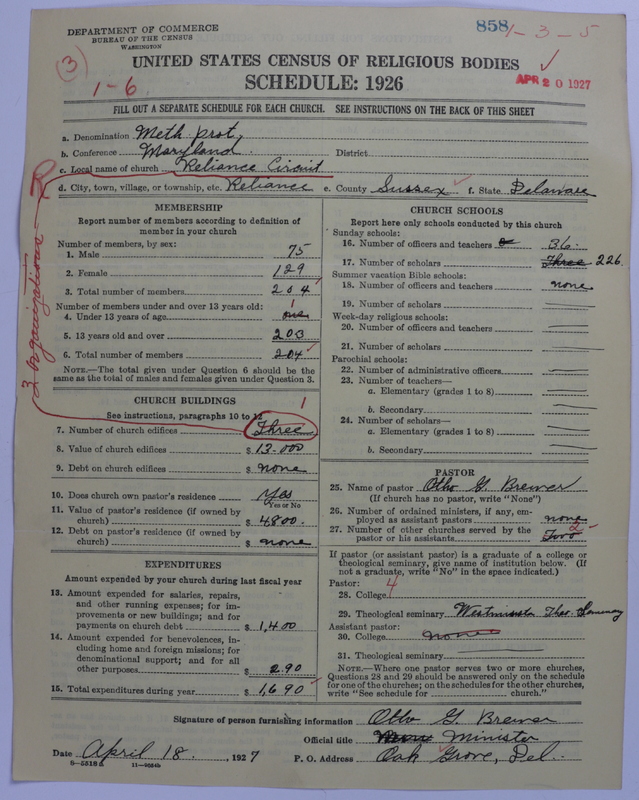 DEPARTMENT OF COMMERCE
BUREAU OF THE CENSUS
WASHINGTON
858 1-3-5
UNITED STATES CENSUS OF RELIGIOUS BODIES
SCHEDULE: 1926
APR 20 1927
(3)
1-6
FILL OUT A SEPARATE SCHEDULE FOR EACH CHURCH. SEE INSTRUCTIONS ON THE BACK OF THIS SHEET
a. Denomination Meth. prot,
b. Conference Maryland District
c. Local name of church Reliance Circuit
d. City, town, village, or township, etc. Reliance e. County Sussex f. State Delaware
3 organizations
MEMBERSHIP
Report number of members according to definition of
member in your church
Number of members, by sex:
1. Male 75
2. Female 129
3. Total number of members 204
Number of members under and over 13 years old:
1
4. Under 13 years of age one
5. 13 years old and over 203
6. Total number of members 204
NOTE.—The total given under Question 6 should be
same as the total of males and females given under Question 3.
CHURCH BUILDINGS
See instructions, paragraphs 10 to 12
1
7. Number of church edifices Three
8. Value of church edifices $ 13.000
9. Debt on church edifices $ none
10. Does church own pastor's residence Yes
Yes or No
11. Value of pastor's residence (if owned by
church) $ 4800.
12. Debt on pastor's residence (if owned by
church) $ none
EXPENDITURES
Amount expended by your church during last fiscal year
13. Amount expended for salaries, repairs,
and other running expenses; for im-
provements or new buildings; and for
payments on church debt $ 1,400
14. Amount expended for benevolences, in-
cluding home and foreign missions; for
denominational support; and for all
other purposes $ 290
15. Total expenditures during year $ 1,690
CHURCH SCHOOLS
Report here only schools conducted by this church
Sunday schools:
16. Number of officers and teachers 36
17. Number of scholars Three 226
Summer vacation Bible schools:
18. Number of officers and teachers none
19. Number of scholars
Week-day religious schools:
20. Number of officers and teachers
21. Number of scholars
Parochial schools:
22. Number of administrative officers
23. Number of teachers—
a. Elementary (grades 1 to 8)
b. Secondary
24. Number of scholars—
a. Elementary (grades 1 to 8)
b. Secondary
PASTOR
25. Name of pastor Otho G. Brewer
(If church has no pastor, write "None")
26. Number of ordained ministers, if any, em-
ployed as assistant pastors none
27. Number of other churches served by the
pastor or his assistants 2
If pastor (or assistant pastor) is a graduate of a college or
theological seminary, give name of institution below. (If
not a graduate, write "No" in the space indicated.)
Pastor:
28. College 4
29. Theological seminary Westminster Theo. Seminary
Assistant pastor:
30. College none
31. Theological seminary
NOTE.—Where one pastor serves two or more churches,
Questions 28 and 29 should be answered only on the schedule
for one of the churches; on the schedules for the other churches,
write "See schedule for church."
Signature of person furnishing information Otho G. Brewer
Official title Minister
Date April 18, 1927 P. O. Address Oak Grove, Del.
11-9664b